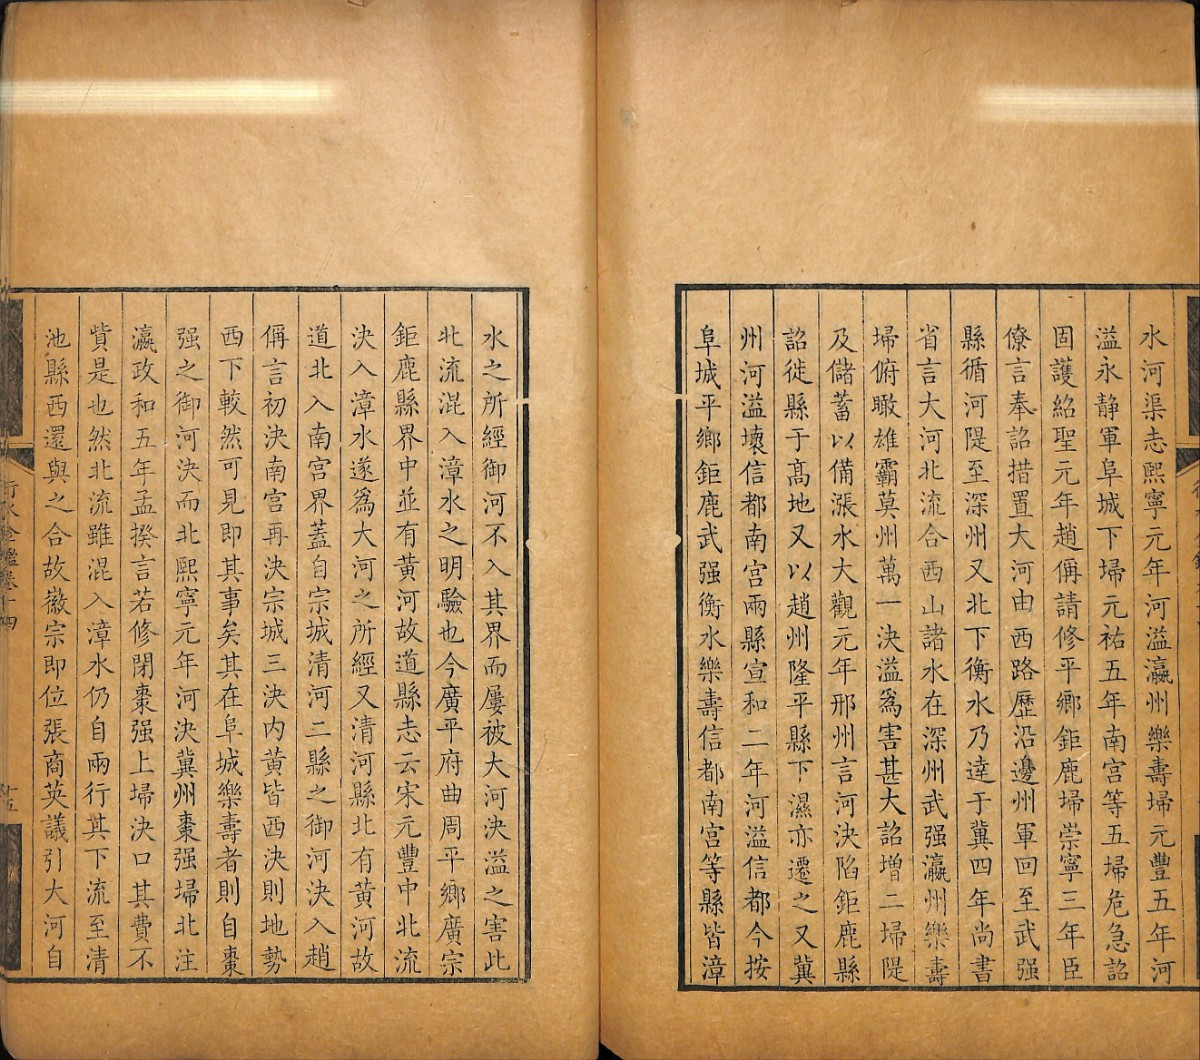 水河渠志熙寧元年河溢瀛州樂壽埽元豐五年河
溢永静軍阜城下埽元祐五年南宫等五埽危急詔
固護紹聖元年趙偁請修平鄉鉅鹿埽崇寧三年臣
僚言奉詔措置大河由西路歷沿邊州軍回至武强
縣循河隄至深州又北下衡水乃達于冀四年尚書
省言大河北流合西山諸水在深州武强瀛州樂壽
埽俯瞰雄霸莫州萬一決溢爲害甚大詔增二埽隄
及儲蓄以備漲水大觀元年邢州言河決陷鉅鹿縣
詔徙縣于高地又以趙州隆平縣下濕亦遷之又冀
州河溢壞信都南宫兩縣宣和二年河溢信都今按
阜城平鄉鉅鹿武强衡水樂壽信都南宫等縣皆漳
水之所經御河不入其界而屢被大河決溢之害此
北流混入漳水之明驗也今廣平府曲周平鄉廣宗
鉅鹿縣界中並有黄河故道縣志云宋元豐中北流
決入漳水遂爲大河之所經又清河縣北有黄河故
道北入南宫界蓋自宗城清河二縣之御河決入趙
偁言初決南宫再決宗城三決内黄皆西決則地勢
西下較然可見即其事矣其在阜城樂壽者則自棗
强之御河決而北熙寧元年河決冀州棗强埽北注
瀛政和五年孟揆言若修閉棗强上埽決口其費不
貲是也然北流雖混入漳水仍自兩行其下流至清
池縣西還與之合故徽宗即位張商英議引大河自
行水金鑑卷十四
十五